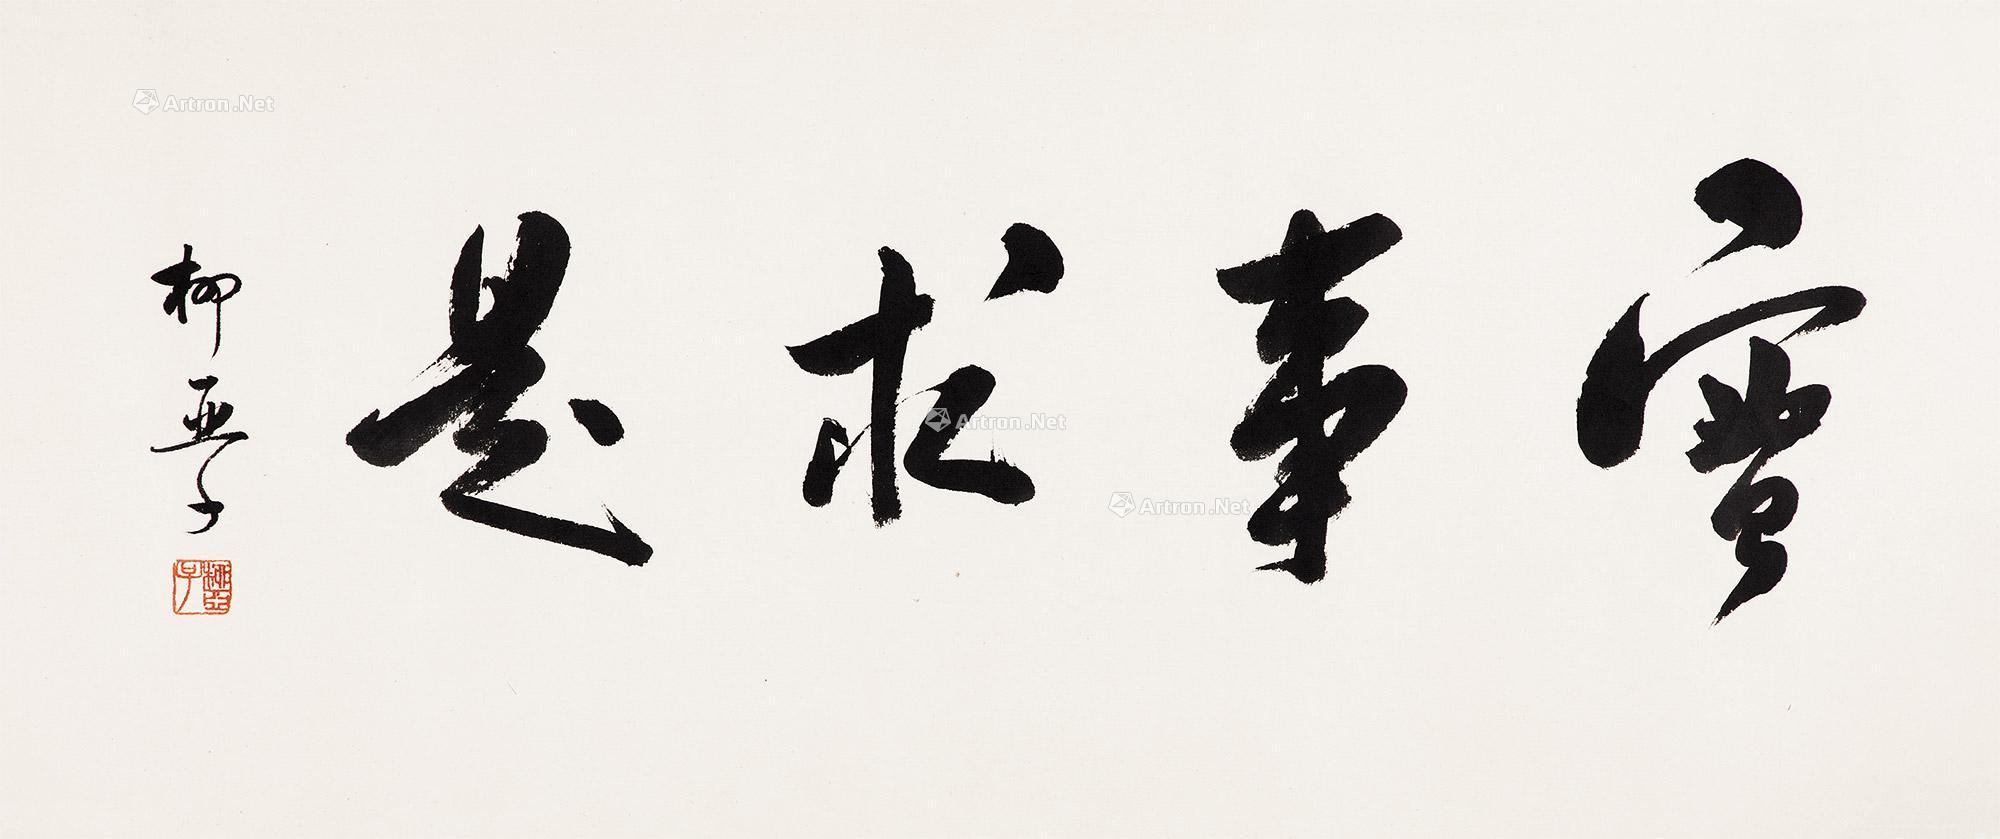 實事求是
柳亞子
柳亞子
Artron.Net
Artron.Net
Artron.Net